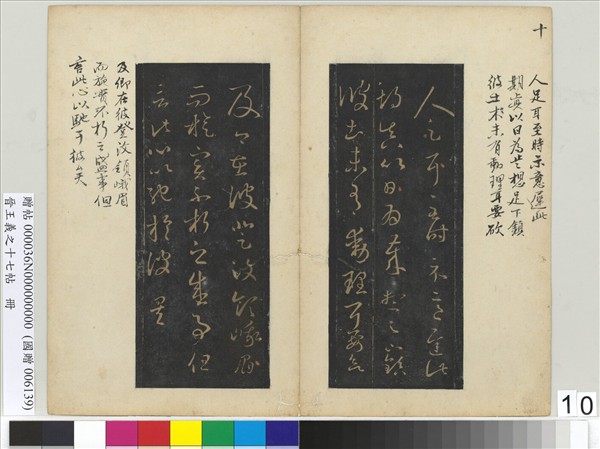 十
人足耳至時示意遲此
期真以日為歲想足下鎮
彼土於未有動理耳要欲
人足耳至時示意遲此
期真以日為歲想足下鎮
彼土未有動理耳要欲
及卿在彼登汶領峨眉
而旋實不朽之盛事但
言此心以馳於彼矣
及卿在彼登汶領峨眉
而旋實不朽之盛事但
言此心以馳于彼矣
贈帖 000036N000000000 (國贈 006139)
晉王羲之十七帖 冊
10